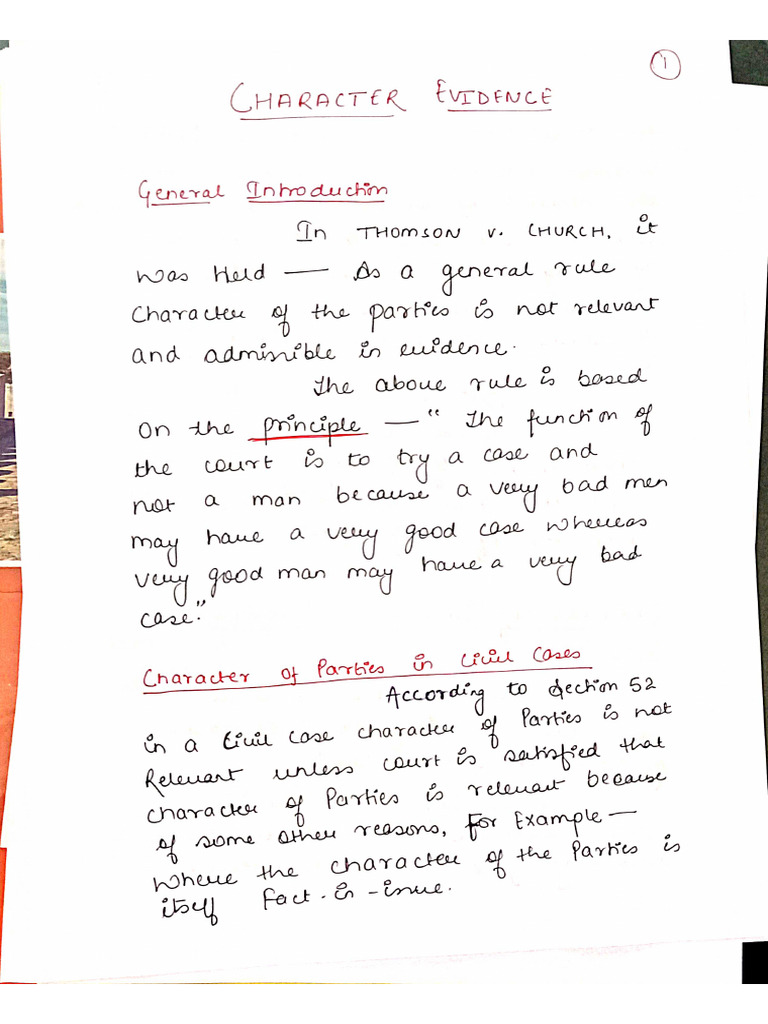 1
CHARACTER EVIDENCE
General Introduction
In THOMSON v. CHURCH, it
was Held — As a general rule
Character of the parties is not relevant
and admissible in evidence.
The above rule is based
on the principle — " The function of
the court is to try a case and
not a man because a very bad men
may have a very good case whereas
very good man may have a very bad
case."
Character of Parties in Civil Cases
According to Section 52
in a Civil case character of Parties is not
Relevant unless court is satisfied that
character of Parties is relevant because
of some other reasons, For Example —
Where the character of the Parties is
itself Fact-in-issue.